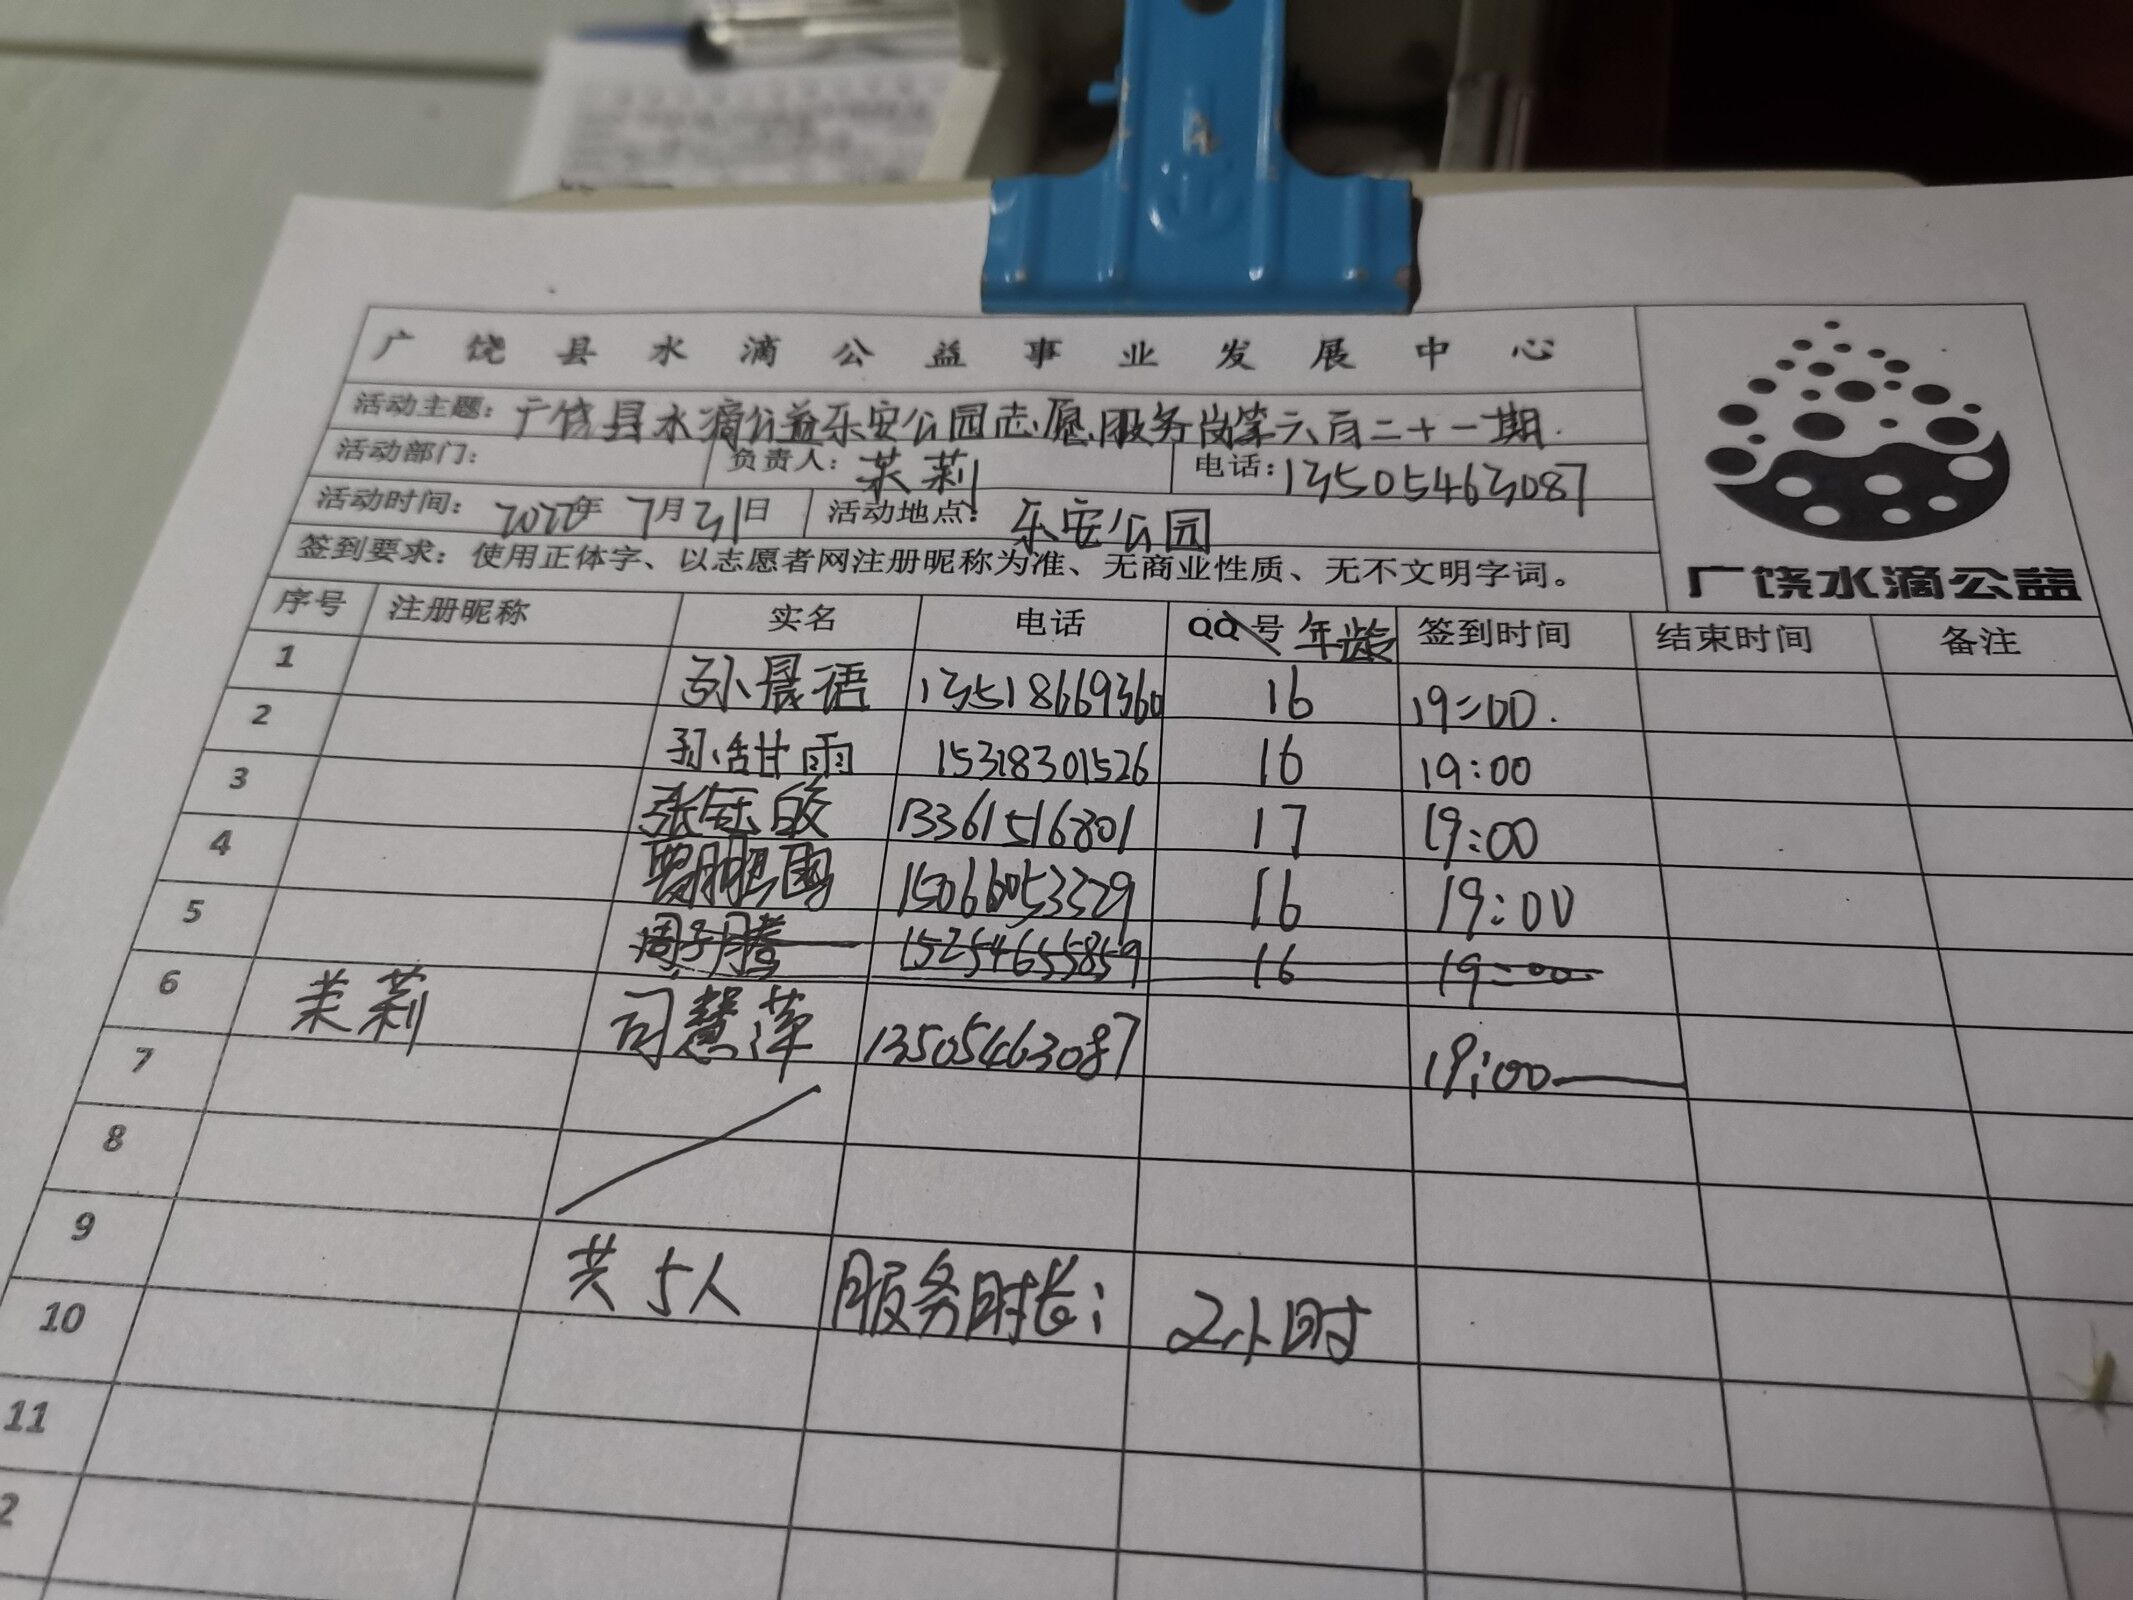 广饶县水滴公益事业发展中心
活动主题：广饶县水滴公益乐安公园志愿服务岗第六百二十一期.
活动部门： 负责人：茉莉 电话：13505463087
活动时间：2022年7月31日 活动地点：乐安公园
签到要求：使用正体字、以志愿者网注册昵称为准、无商业性质、无不文明字词。
广饶水滴公益
序号 注册昵称 实名 电话 QQ号 年龄 签到时间 结束时间 备注
1 孙晨语 13518669360 16 19:00.
2 孙甜雨 15318301526 16 19:00
3 张钰皎 13361516801 17 19:00
4 15066053329 16 19:00
5 周子腾 15254655859 16 19:00
6 茉莉 司慧萍 13505463087 19:00
7
8
9 共5人 服务时长： 2小时
10
11
2